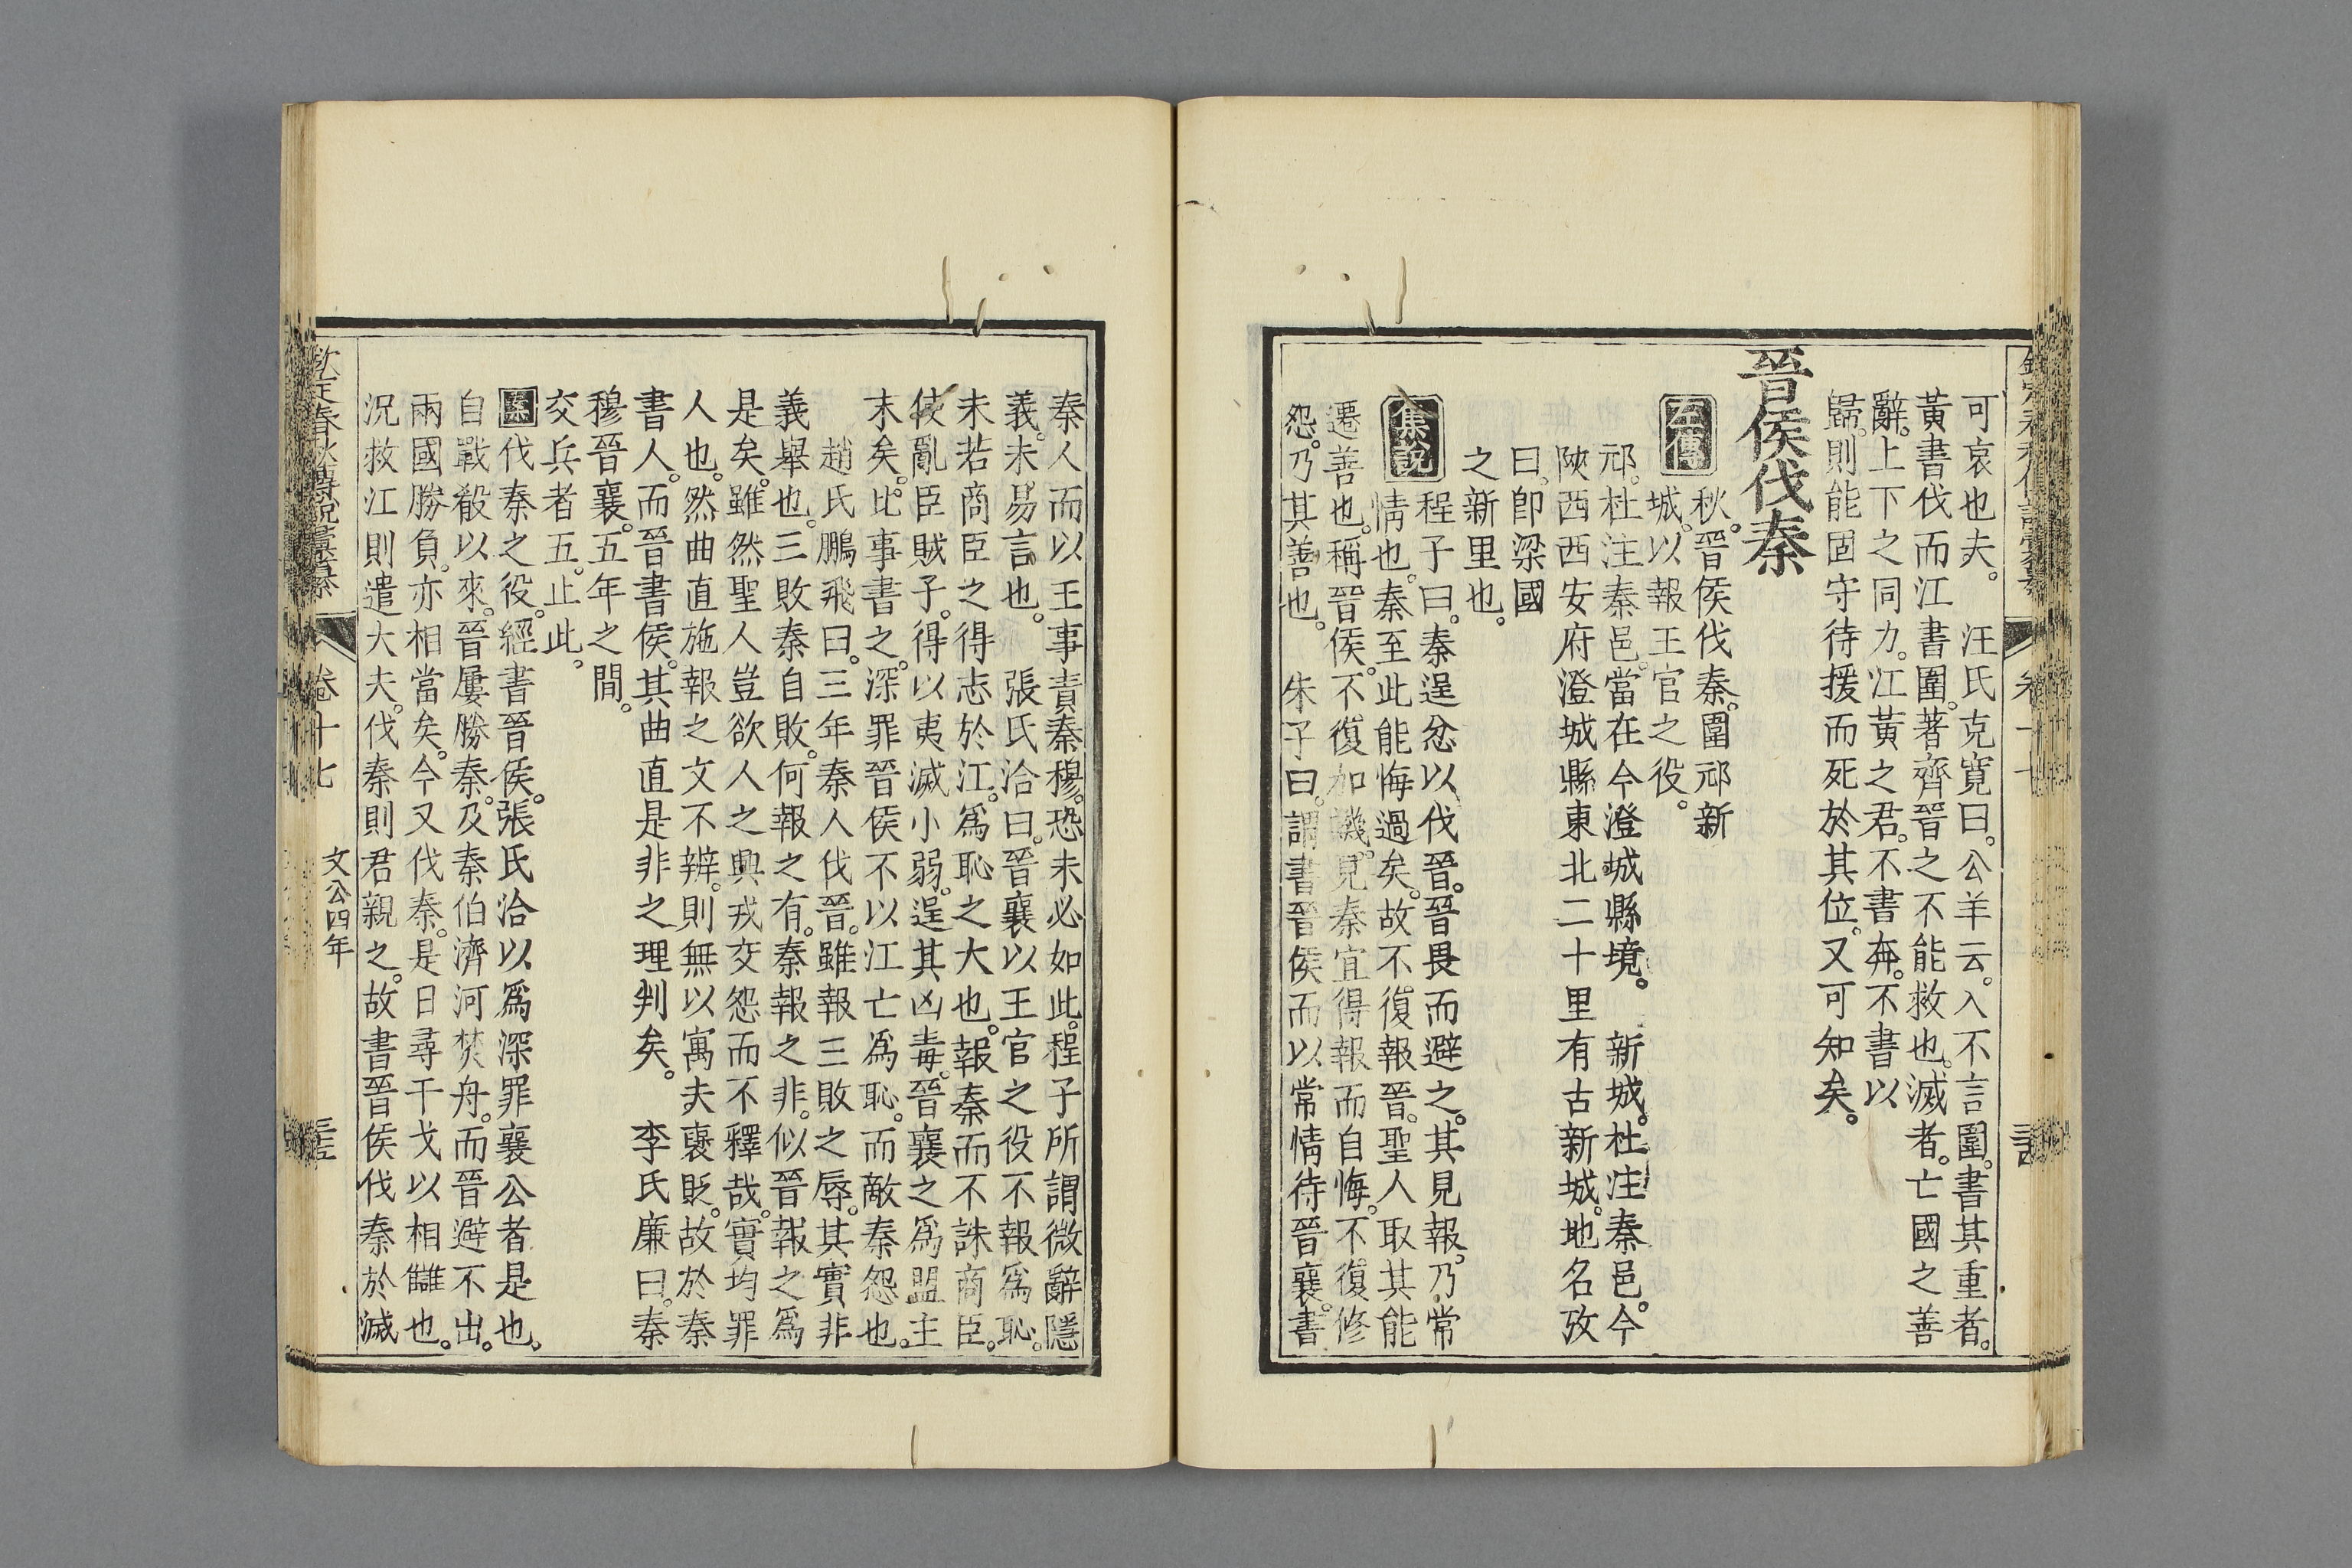 可哀也夫。　汪氏克寬曰。公羊云。入不言圍。書其重者。
黃書伐而江書圍。著齊晉之不能救也。滅者。亡國之善
辭。上下之同力。江黃之君。不書奔。不書以
歸。則能固守待援而死於其位。又可知矣。
晉侯伐秦
左傳
秋。晉侯伐秦。圍邧新
城。以報王官之役。
邧。杜注秦邑。當在今澄城縣境。　新城。杜注秦邑。今
陝西西安府澄城縣東北二十里有古新城。地名攷
曰。卽梁國
之新里也。
集說
程子曰。秦逞忿以伐晉。晉畏而避之。其見報。乃常
情也。秦至此能悔過矣。故不復報晉。聖人取其能
遷善也。稱晉侯。不復加譏。見秦宜得報而自悔。不復修
怨。乃其善也。　朱子曰。謂書晉侯而以常情待晉襄。書
秦人而以王事責秦穆。恐未必如此。程子所謂微辭隱
義。未易言也。　張氏洽曰。晉襄以王官之役不報爲恥。
未若商臣之得志於江。爲恥之大也。報秦而不誅商臣。
使亂臣賊子。得以夷滅小弱。逞其凶毒。晉襄之爲盟主
末矣。比事書之。深罪晉侯不以江亡爲恥。而敵秦怨也。
趙氏鵬飛曰。三年秦人伐晉。雖報三敗之辱。其實非
義舉也。三敗秦自敗。何報之有。秦報之非。似晉報之爲
是矣。雖然聖人豈欲人之興戎交怨而不釋哉。實均罪
人也。然曲直施報之文不辨。則無以寓夫襃貶。故於秦
書人。而晉書侯。其曲直是非之理判矣。　李氏廉曰。秦
穆晉襄。五年之間。
交兵者五。止此。
案伐秦之役。經書晉侯。張氏洽以爲深罪襄公者是也。
自戰殽以來。晉屢勝秦。及秦伯濟河焚舟。而晉避不出。
兩國勝負。亦相當矣。今又伐秦。是日尋干戈以相讎也。
況救江則遣大夫。伐秦則君親之。故書晉侯伐秦於滅
欽定春秋傳說彙纂　卷十七　文公四年